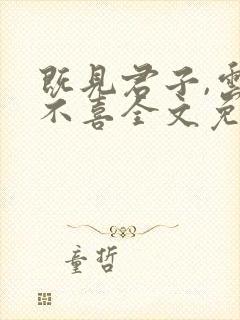 既見君子,雲
不喜全文免
童哲